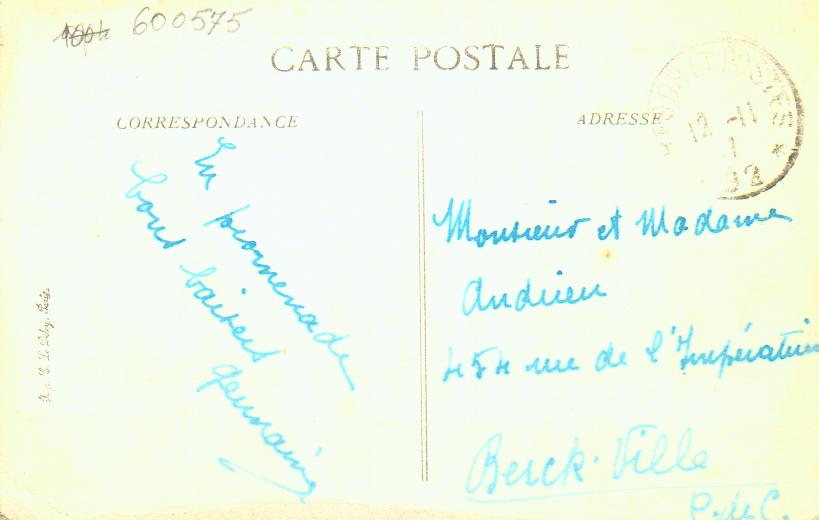 600575
CARTE POSTALE
CORRESPONDANCE
ADRESSE
POSTES
12 -11
1
32
En promenade
bons baisers
Germaine
Monsieur et Madame
Andrieu
454 rue de l'Impératrice
Berck-Ville
P. de C.